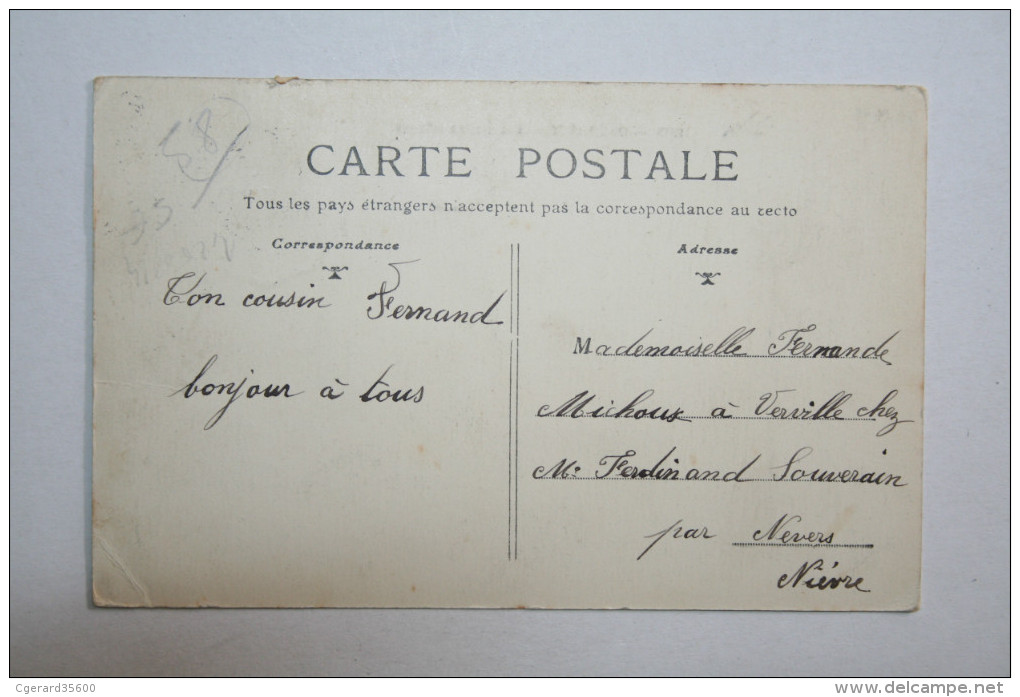 58
CARTE POSTALE
Tous les pays étrangers n'acceptent pas la correspondance au recto
Correspondance
Adresse
Ton cousin Fernand
bonjour à tous
Mademoiselle Fernande
Michoux à Verville chez
Mr Ferdinand Souverain
par Nevers
Nièvre
Cgerard35600
www.delcampe.net